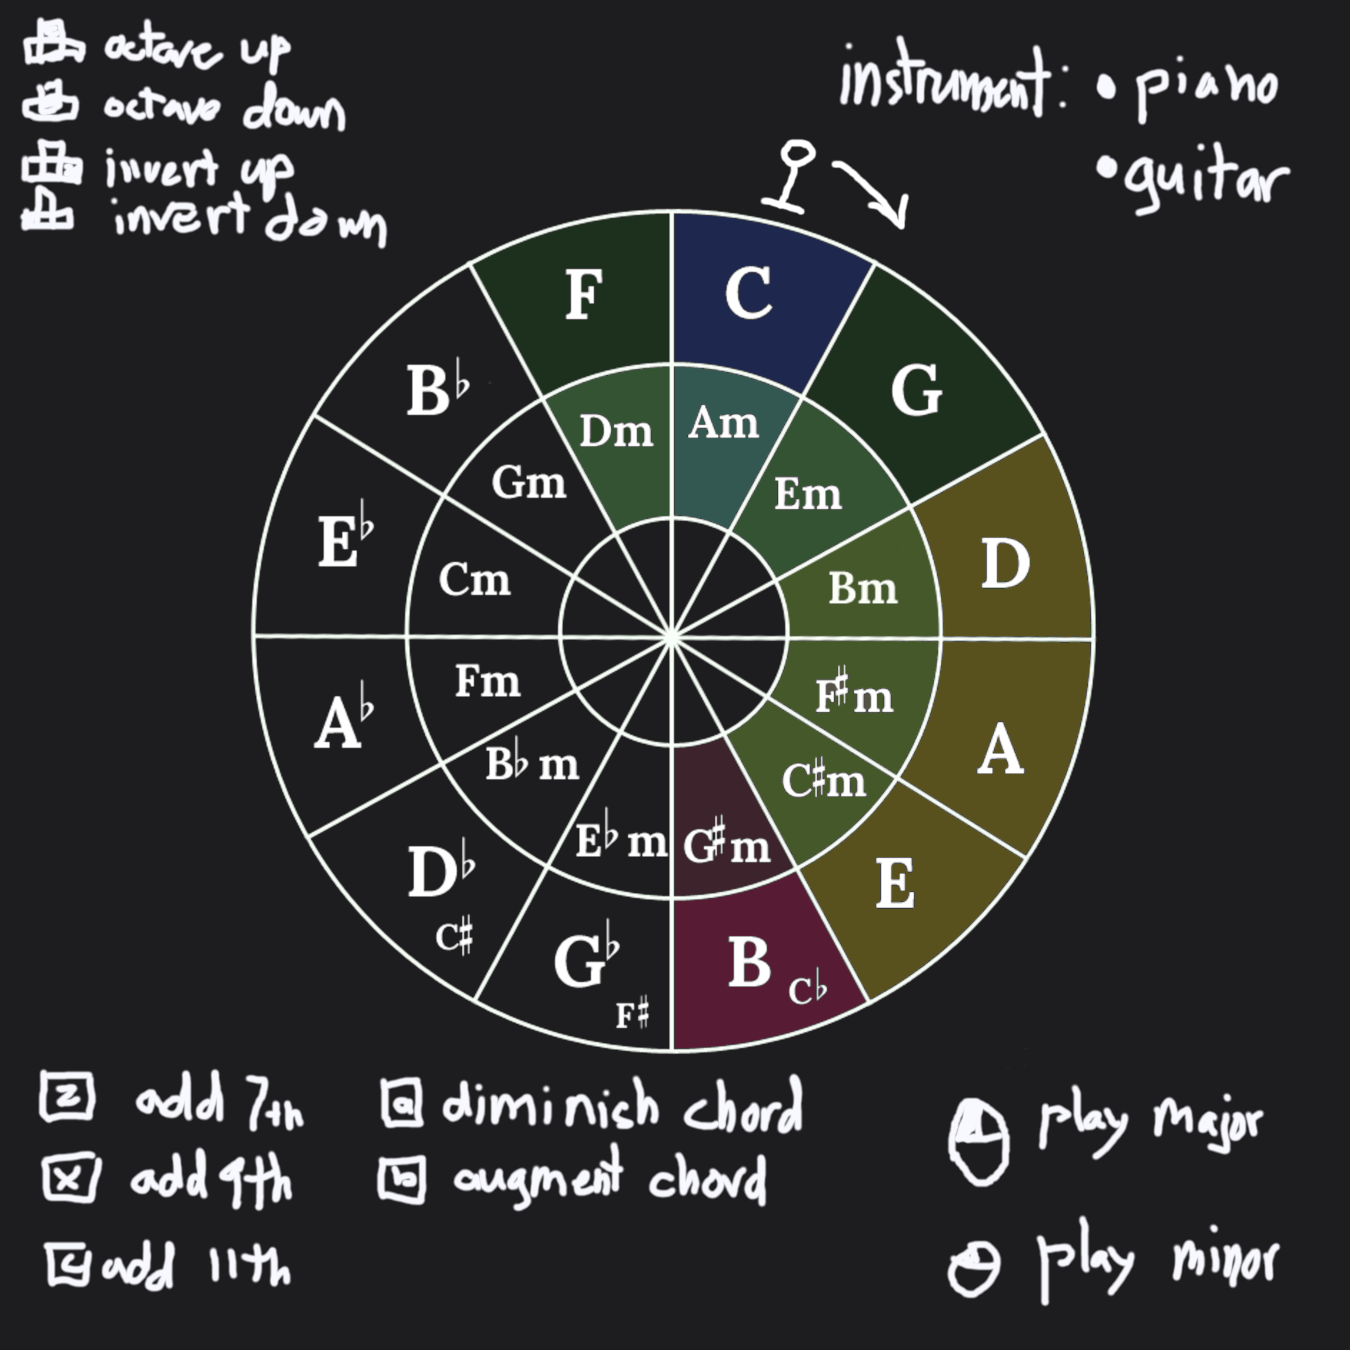 octave up
octave down
invert up
invert down
instrument: • piano
• guitar
F
C
G
D
A
E
B C♭
G♭ F♯
D♭ C♯
A♭
E♭
B♭
Dm
Am
Em
Bm
F♯m
C♯m
G♯m
E♭m
B♭m
Fm
Cm
Gm
z add 7th
x add 9th
c add 11th
a diminish chord
b augment chord
play major
play minor